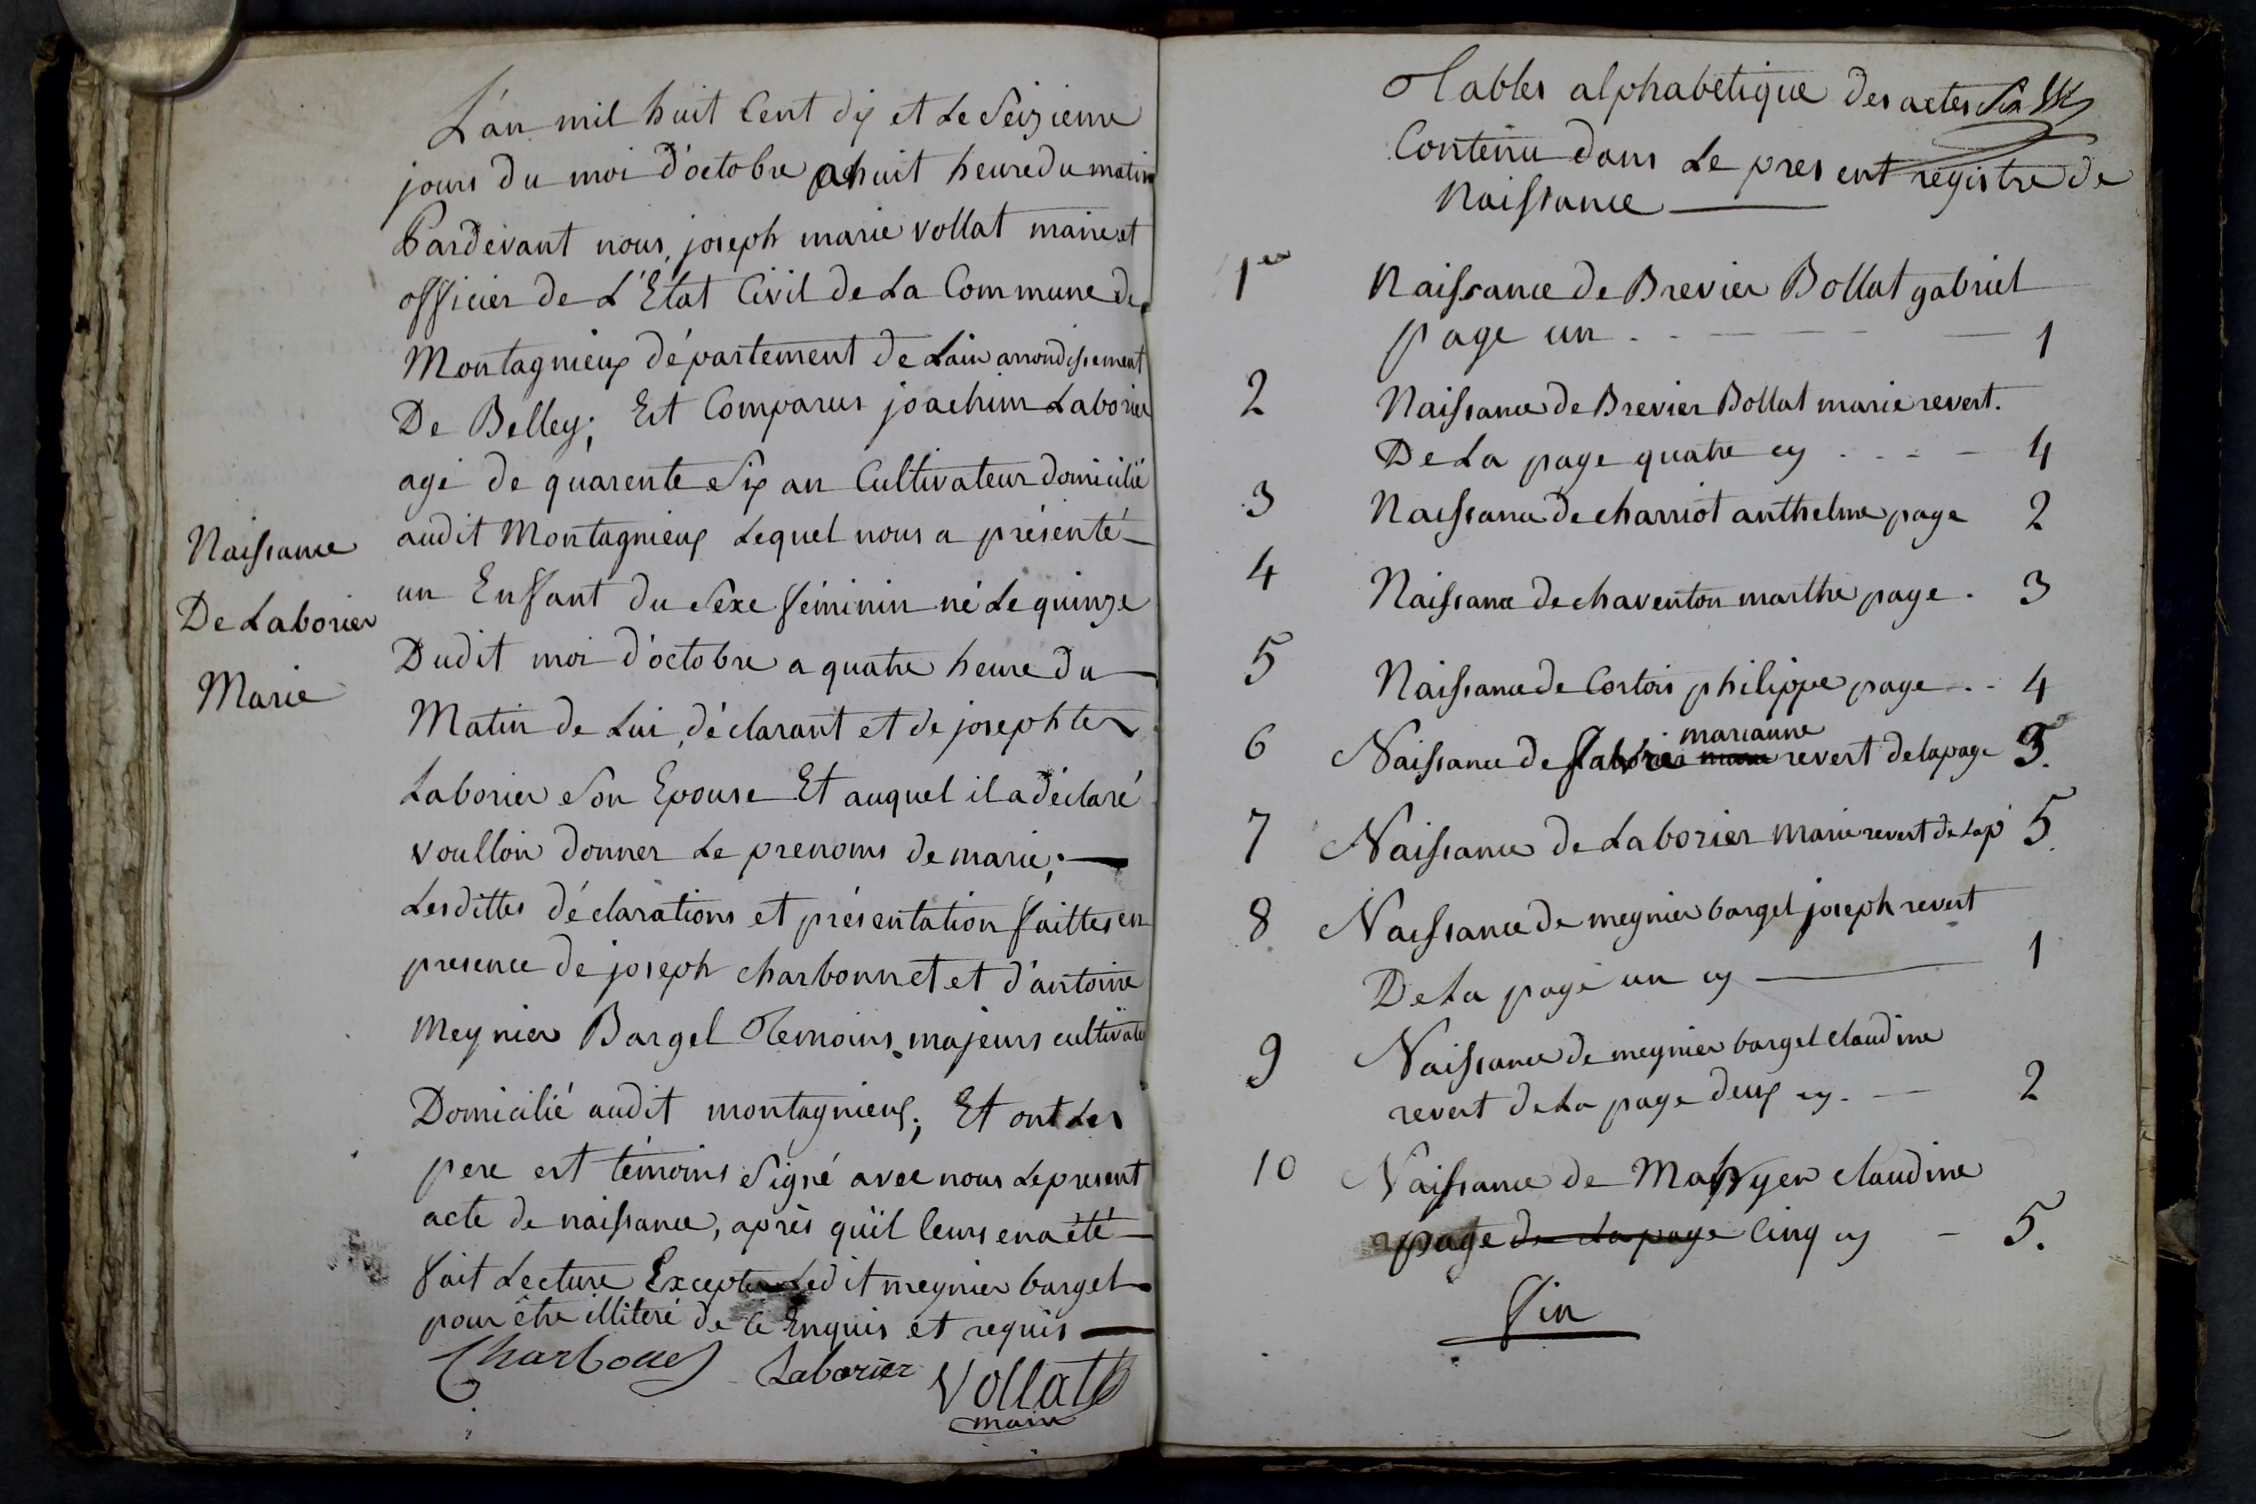 L'an mil huit Cent dix et Le Seizieme
jours du moi d'octobre a huit heure du matin
Pardevant nous, joseph marie vollat maire et
officier de L'Etat Civil de La Commune de
Montagnieux département de Lain arrondissement
De Belley; Est Comparus joachim Laborier
agé de quarente Six an Cultivateur domicilié
audit Montagnieux Lequel nous a présenté
Naissance
un Enffant du Sexe féminin né Le quinze
De Laborier
Dudit moi d'octobre a quatre heure du
Marie
Matin de Lui, déclarant et de josephte
Laborier Son Epouse Et auquel il a déclaré
voulloir donner Le prenoms de marie;
Lesdittes déclarations et présentation faittes en
presence de joseph charbonnet et d'antoine
Meynier Bargel Temoins majeurs cultivateu
Domicilié audit montagnieux; Et ont Les
pere est témoins Signé avec nous Le present
acte de naissance, après qu'il leurs en a été
fait Lecture Excepter Ledit meynier bargel
pour être illiteré de Ce Enquis et requis
Charbonet Laborier Vollat
maire
Tables alphabetique Des actes
Contenu dans Le present registre de
Naissance
1er Naissance de Brevier Bollat gabriel
page un 1
2 Naissance de Brevier Bollat marie revert.
De La page quatre cy 4
3 Naissance de charriot anthelme page 2
4 Naissance de chaventon marthe page . 3
5 Naissance de Cortois philippe page . . 4
marianne
6 Naissance de favrier marie revert de la page 3.
7 Naissance de Laborier Marie revert de La p 5.
8 Naissance de meynier bargel joseph revert
De La page un cy 1
9 Naissance de meynier bargel claudine
revert de La page deux cy. 2
10 Naissance de claudine
page de La page Cinq cy - 5.
Fin